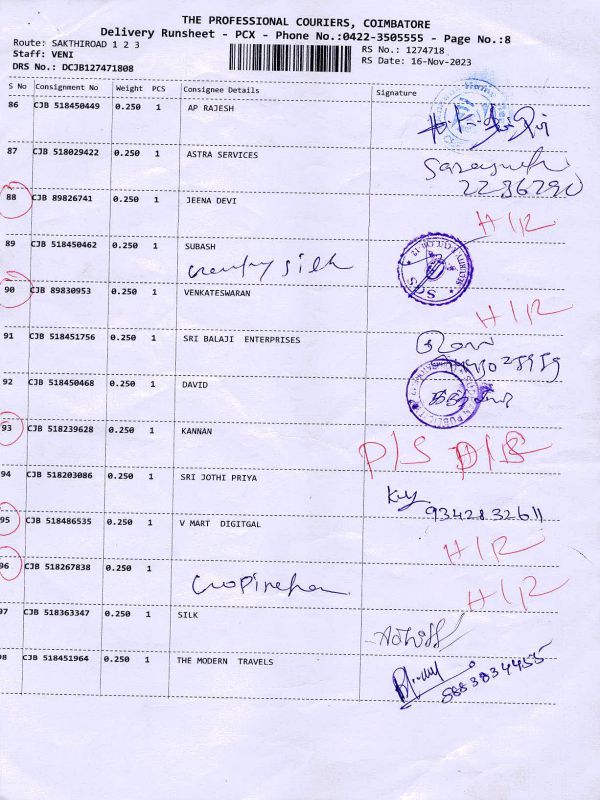 THE PROFESSIONAL COURIERS, COIMBATORE
Delivery Runsheet - PCX - Phone No.:0422-3505555 - Page No.:8
Route: SAKTHIROAD 1 2 3
RS No.: 1274718
Staff: VENI
RS Date: 16-Nov-2023
DRS No.: DCJB127471808
S No Consignment No Weight PCS Consignee Details Signature
86 CJB 518450449 0.250 1 AP RAJESH
87 CJB 518029422 0.250 1 ASTRA SERVICES
88 CJB 89826741 0.250 1 JEENA DEVI H/R
89 CJB 518450462 0.250 1 SUBASH
silk
90 CJB 89830953 0.250 1 VENKATESWARAN H/R
91 CJB 518451756 0.250 1 SRI BALAJI ENTERPRISES
92 CJB 518450468 0.250 1 DAVID
93 CJB 518239628 0.250 1 KANNAN P/S
94 CJB 518203086 0.250 1 SRI JOTHI PRIYA
9342832611
95 CJB 518486535 0.250 1 V MART DIGITGAL H/R
96 CJB 518267838 0.250 1 H/R
97 CJB 518363347 0.250 1 SILK
98 CJB 518451964 0.250 1 THE MODERN TRAVELS
8883834455